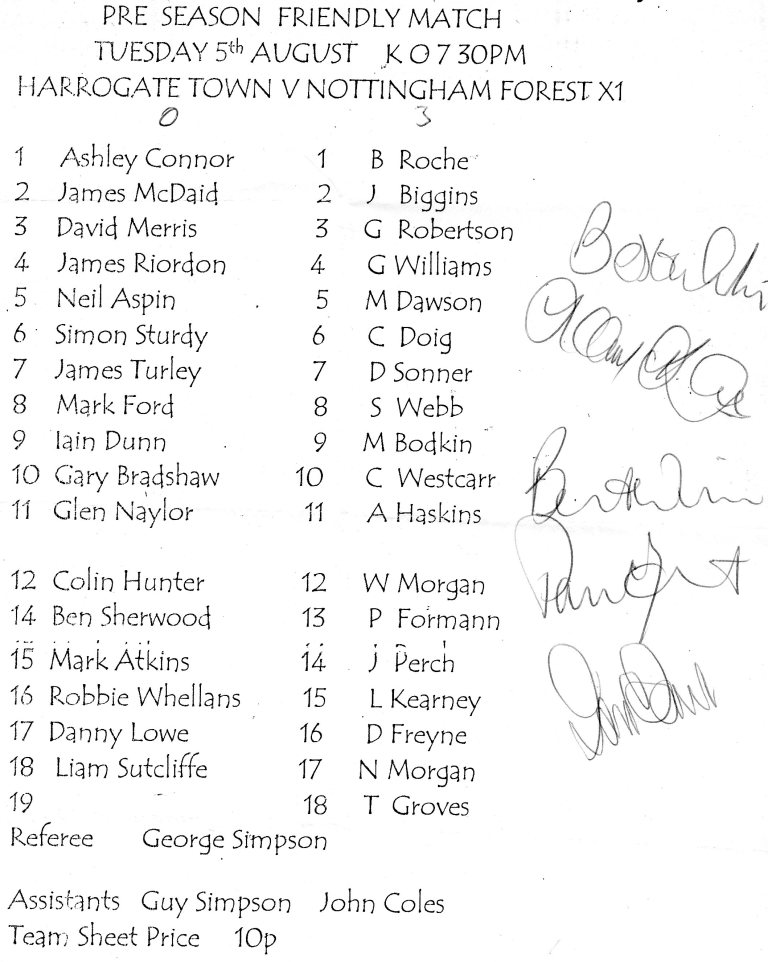 PRE SEASON FRIENDLY MATCH
TUESDAY 5th AUGUST K O 7 30PM
HARROGATE TOWN V NOTTINGHAM FOREST X1
0 3
1 Ashley Connor 1 B Roche
2 James McDaid 2 J Biggins
3 David Merris 3 G Robertson
4 James Riordon 4 G Williams
5 Neil Aspin 5 M Dawson
6 Simon Sturdy 6 C Doig
7 James Turley 7 D Sonner
8 Mark Ford 8 S Webb
9 Iain Dunn 9 M Bodkin
10 Gary Bradshaw 10 C Westcarr
11 Glen Naylor 11 A Haskins
12 Colin Hunter 12 W Morgan
14 Ben Sherwood 13 P Formann
15 Mark Atkins 14 J Perch
16 Robbie Whellans 15 L Kearney
17 Danny Lowe 16 D Freyne
18 Liam Sutcliffe 17 N Morgan
19 18 T Groves
Referee George Simpson
Assistants Guy Simpson John Coles
Team Sheet Price 10p